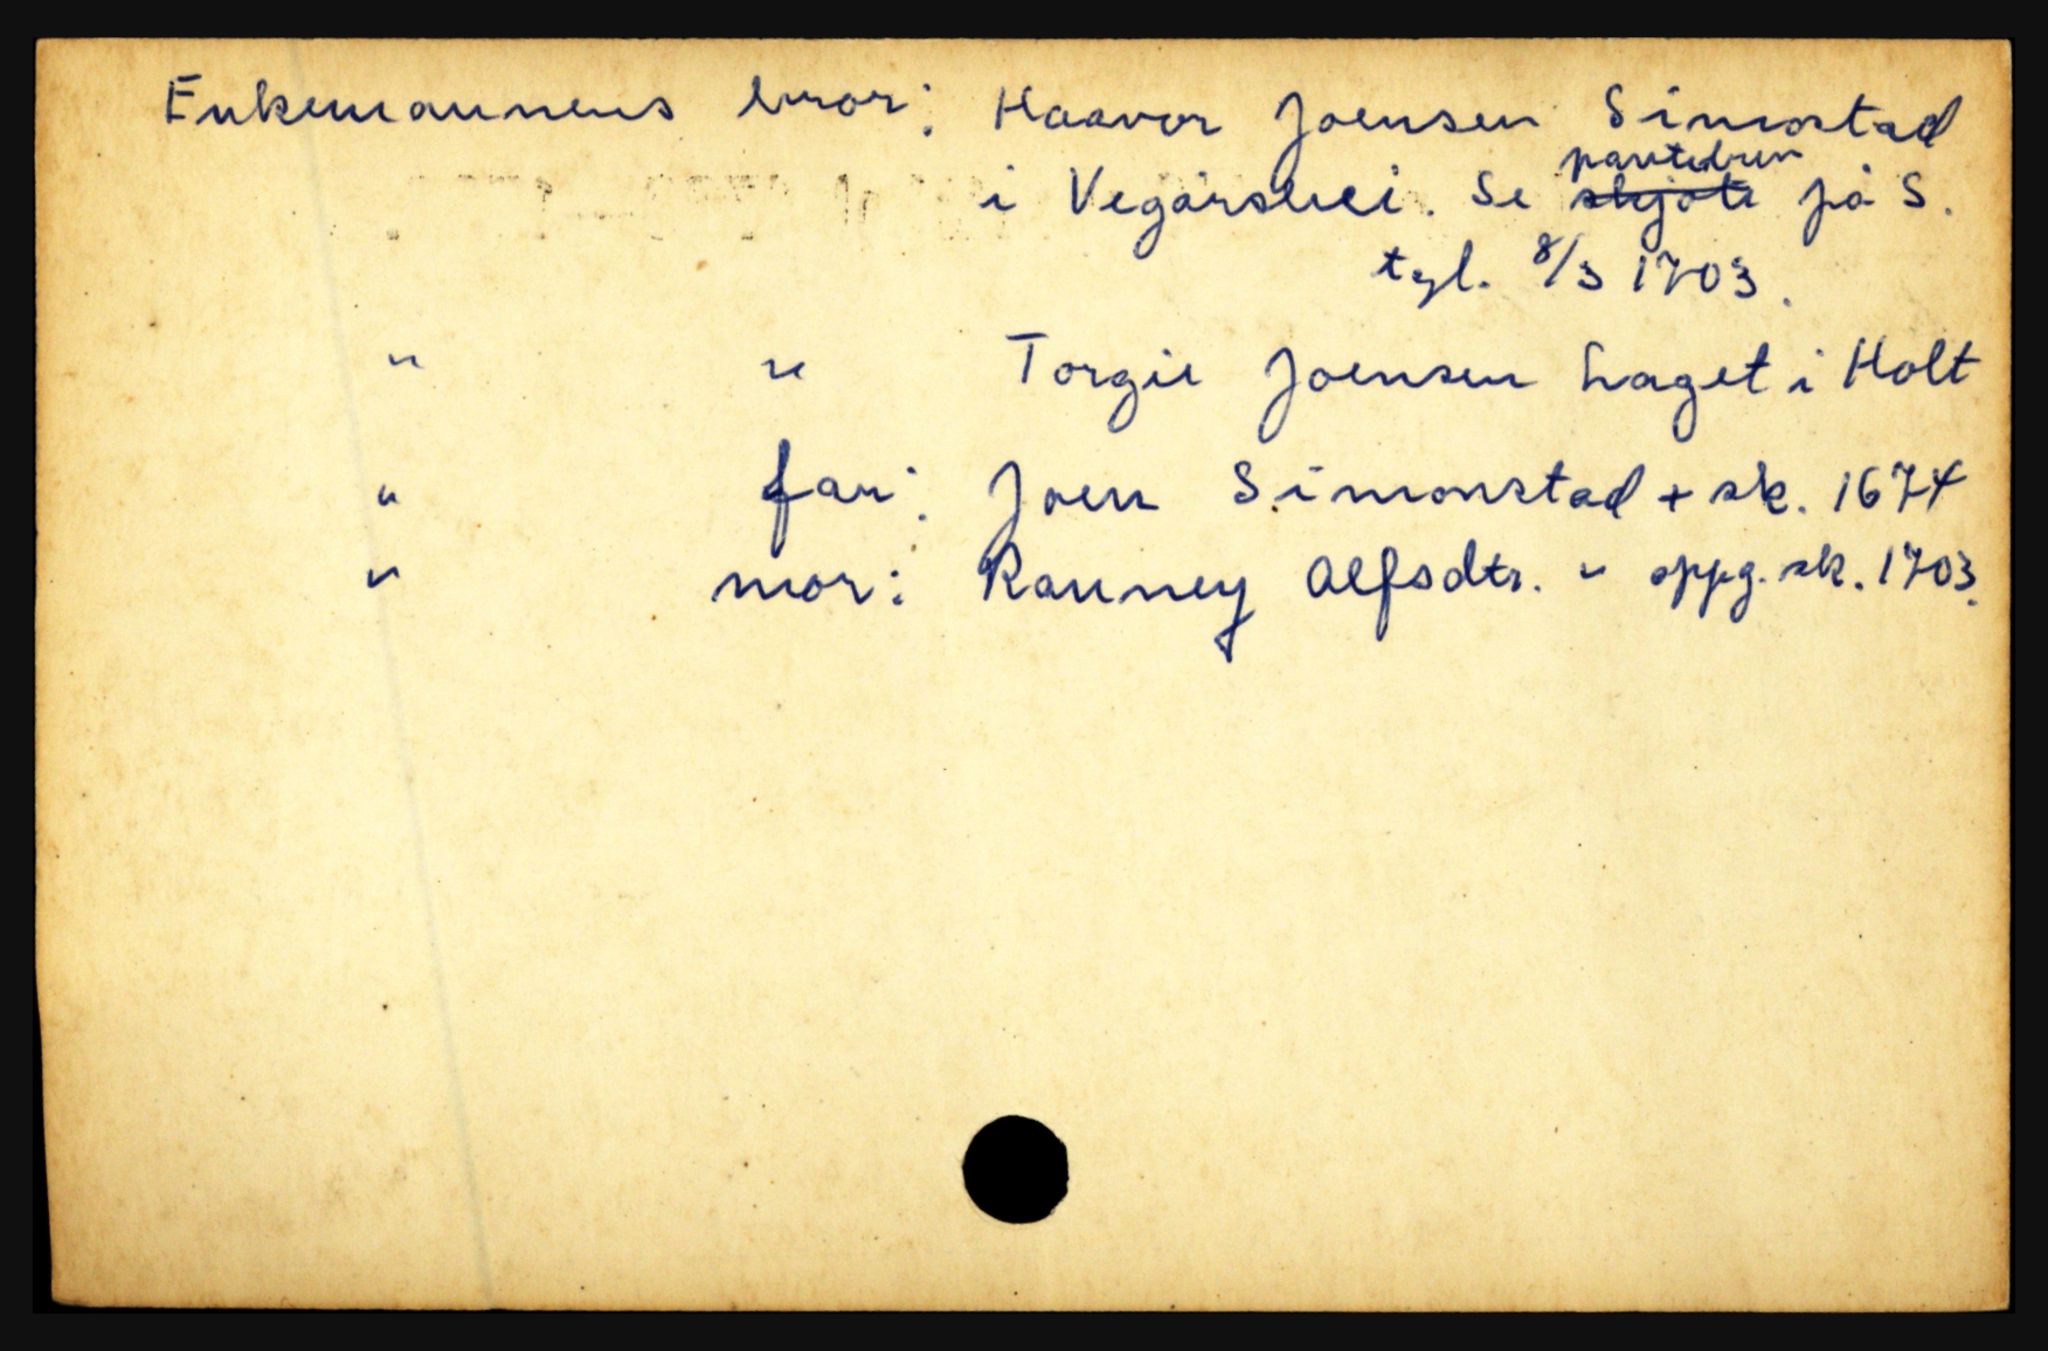 Enkemannens bror: Haavor Joensen Simostad
i Vegårshei. Se skjøte pantebrev på S.
tgl. 8/3 1703.
" " Torgie Joensen Laget i Holt
" far: Joen Simonstad + sk. 1674
" mor: Ranney Alfsdtr. " oppg. sk. 1703.